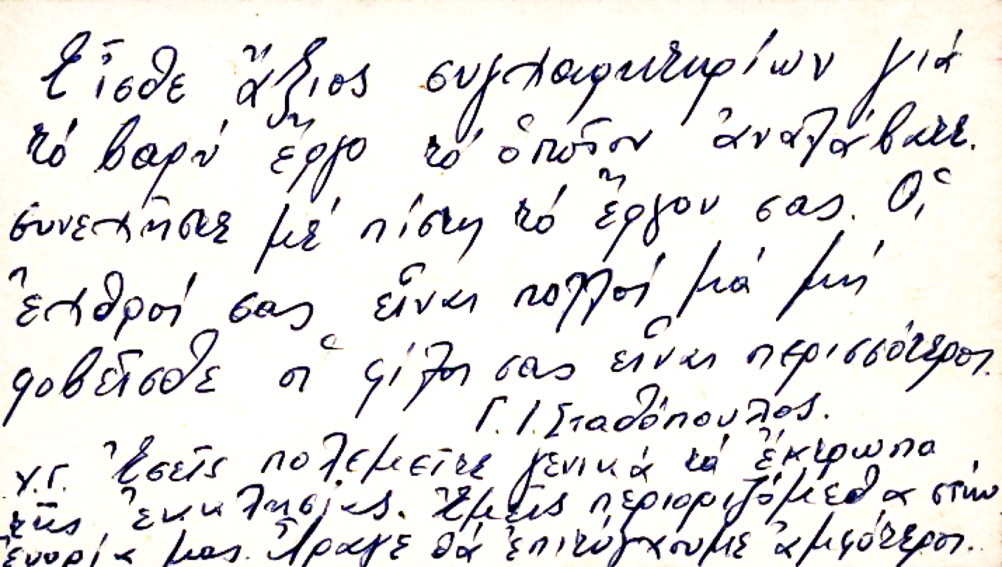 Εἶσθε ἄξιος συγχαρητηρίων γιά
τό βαρύ ἔργο τό ὁποῖον ἀναλάβατε.
συνεχῆστε μέ πίστη τό ἔργον σας. Οἱ
ἐχθροί σας εἶναι πολλοί μά μή
φοβεῖσθε οἱ φίλοι σας εἶναι περισσότεροι.
Γ. Ι. Σταθόπουλος.
Υ.Γ. Ἐσεῖς πολεμεῖτε γενικά τά ἔκτρωπα
τῆς ἐκκλησίας. Ἐμεῖς περιοριζόμεθα στήν
ἐνορία μας. Ἄραγε θά ἐπιτύχουμε ἀμφότεροι..